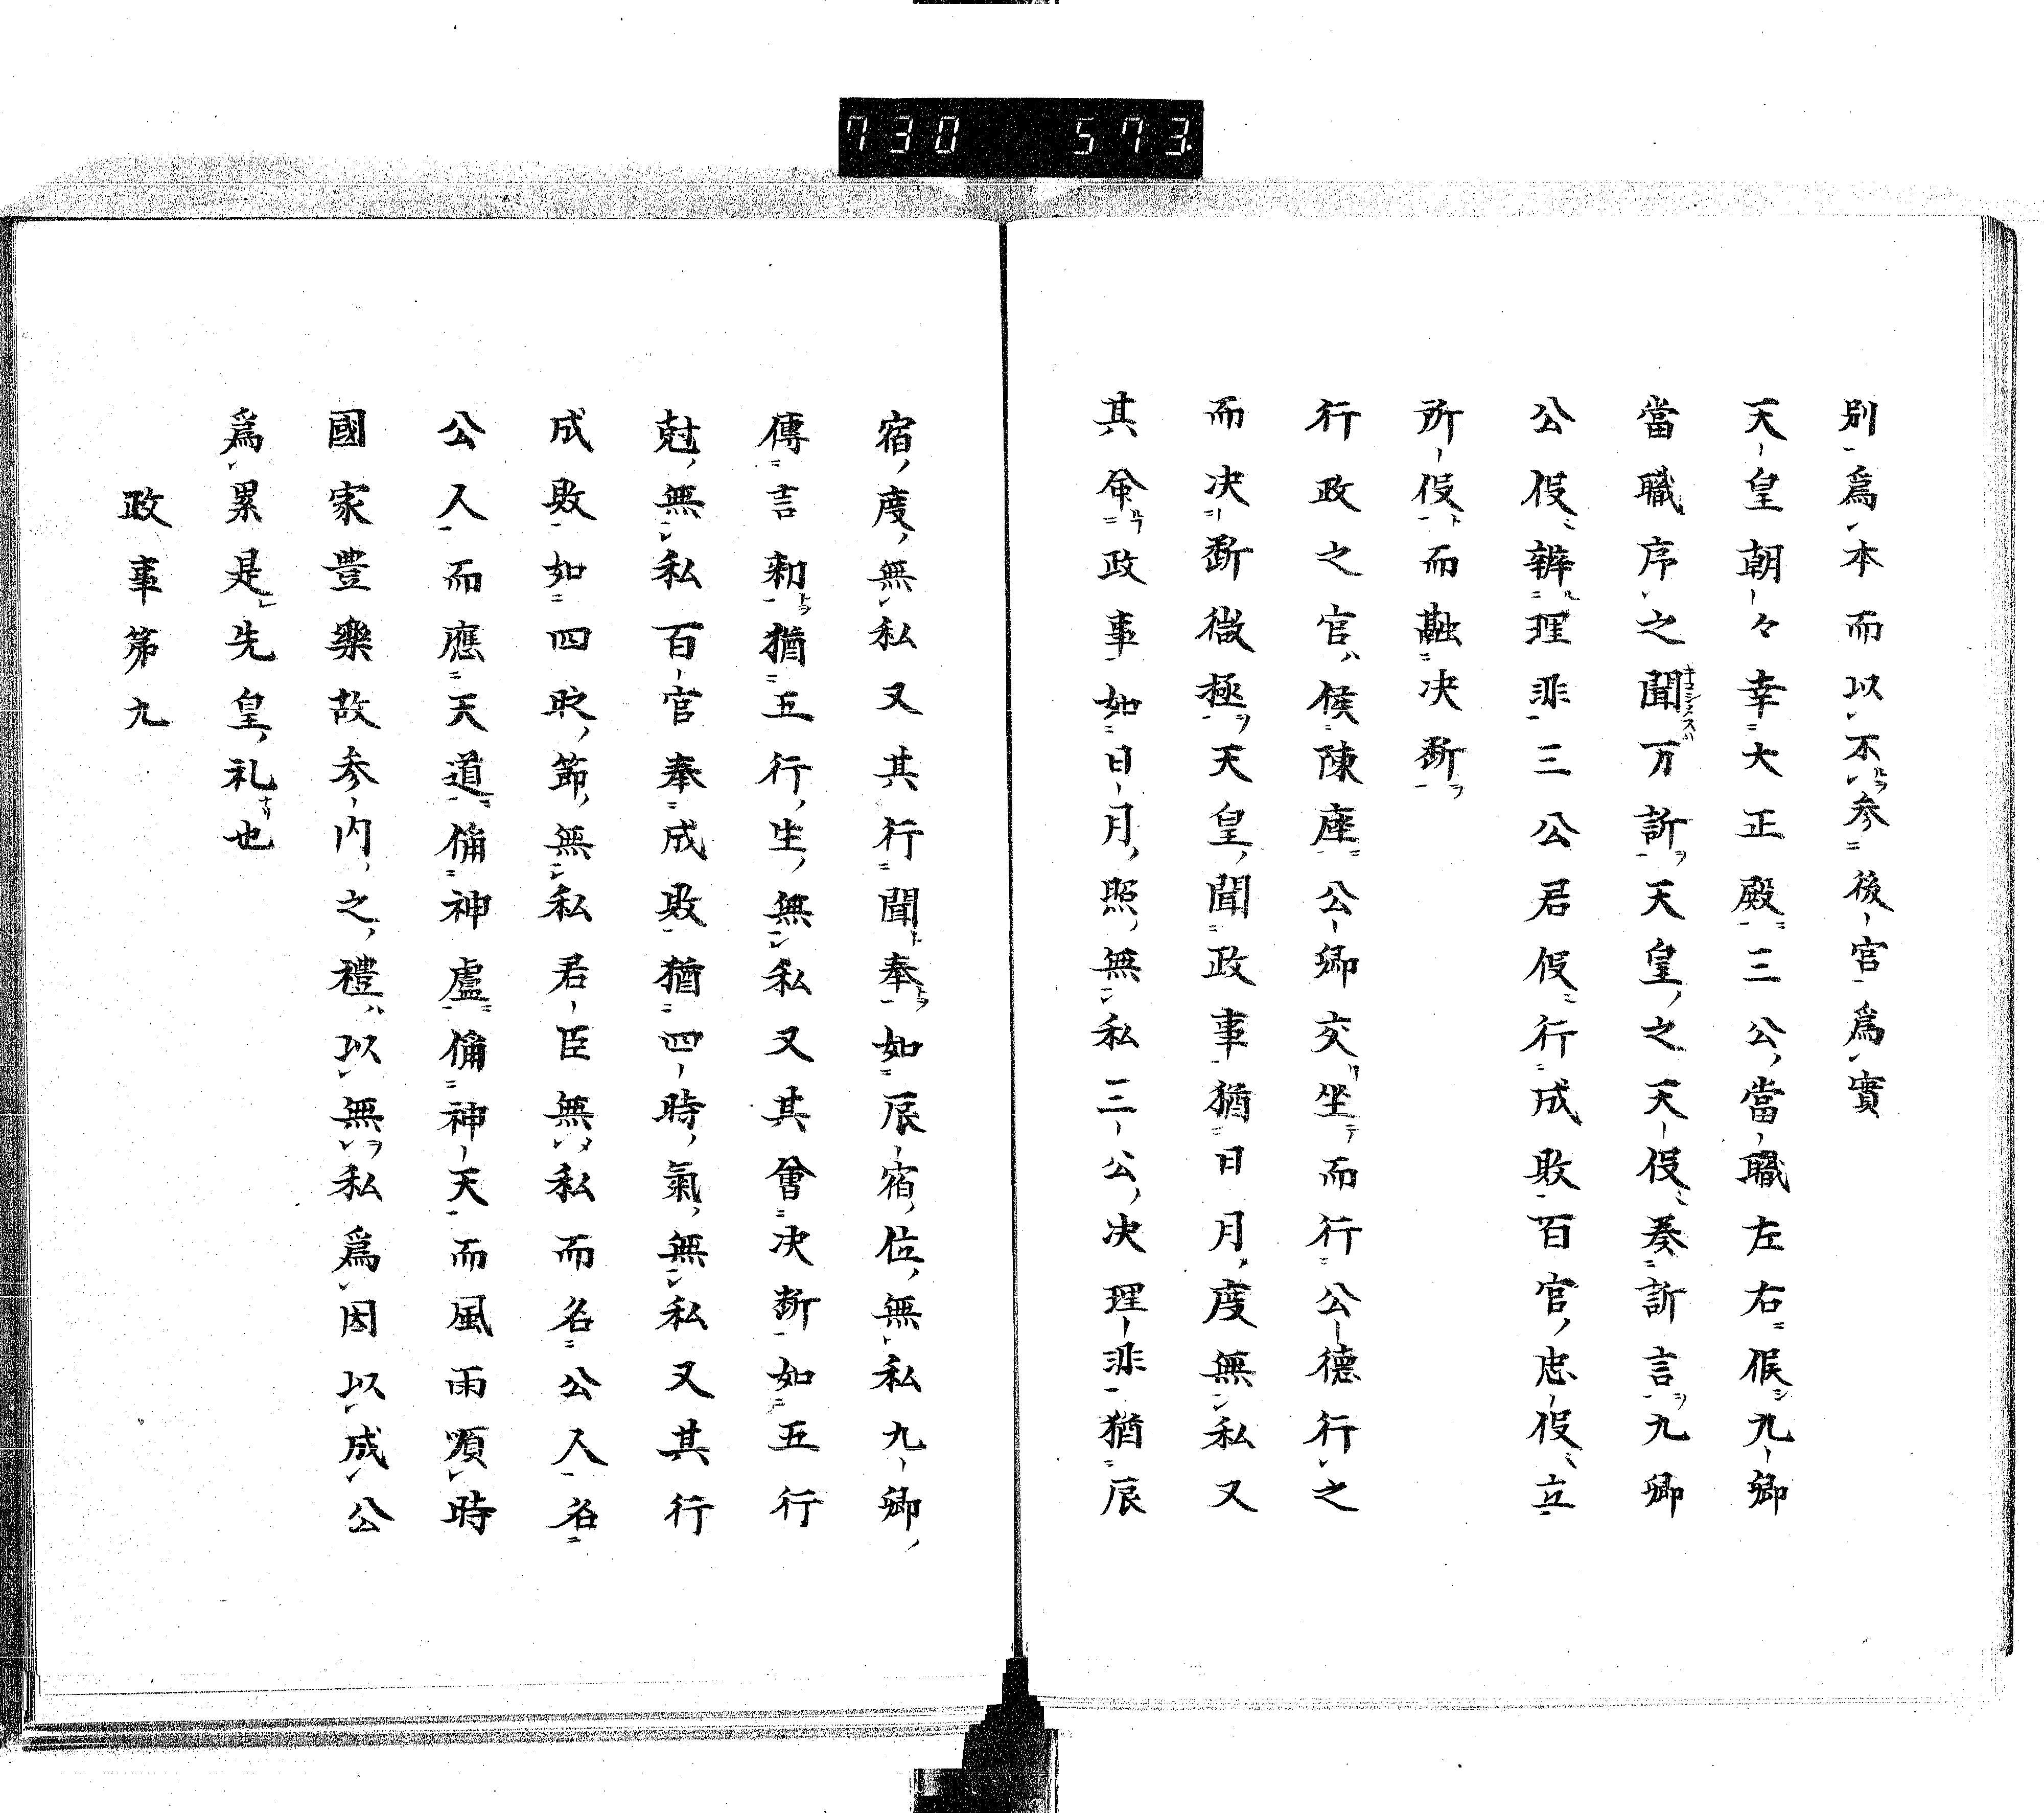 730 573
別為本而以不参後官為實
天皇朝々幸大正殿三公當職左右候九卿
當職序之聞万訴天皇之天伇奏訴言九卿
公伇辨理非三公君伇行成敗百官忠伇立
所伇而融决断
行政之官候陳座公卿交坐而行公德行之
而决断微極天皇聞政事猶日月度無私又
其命政事如日月照無私三公决理非猶辰
宿度無私又其行聞奉如辰宿位無私九卿
傳言勅猶五行生無私又其會决断如五行
尅無私百官奉成敗猶四時氣無私又其行
成敗如四時節無私君臣無私而名公人名
公人而應天道俻神虛俻神天而風雨順時
國家豊樂故参内之禮以無私為因以成公
為累是先皇礼也
政事第九